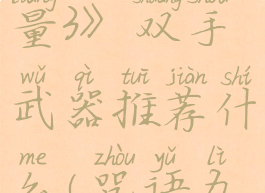 量3》 双手
wǔ qì tuī jiàn shí
武器推荐什
me zhòu yǔ lì
么(咒语力